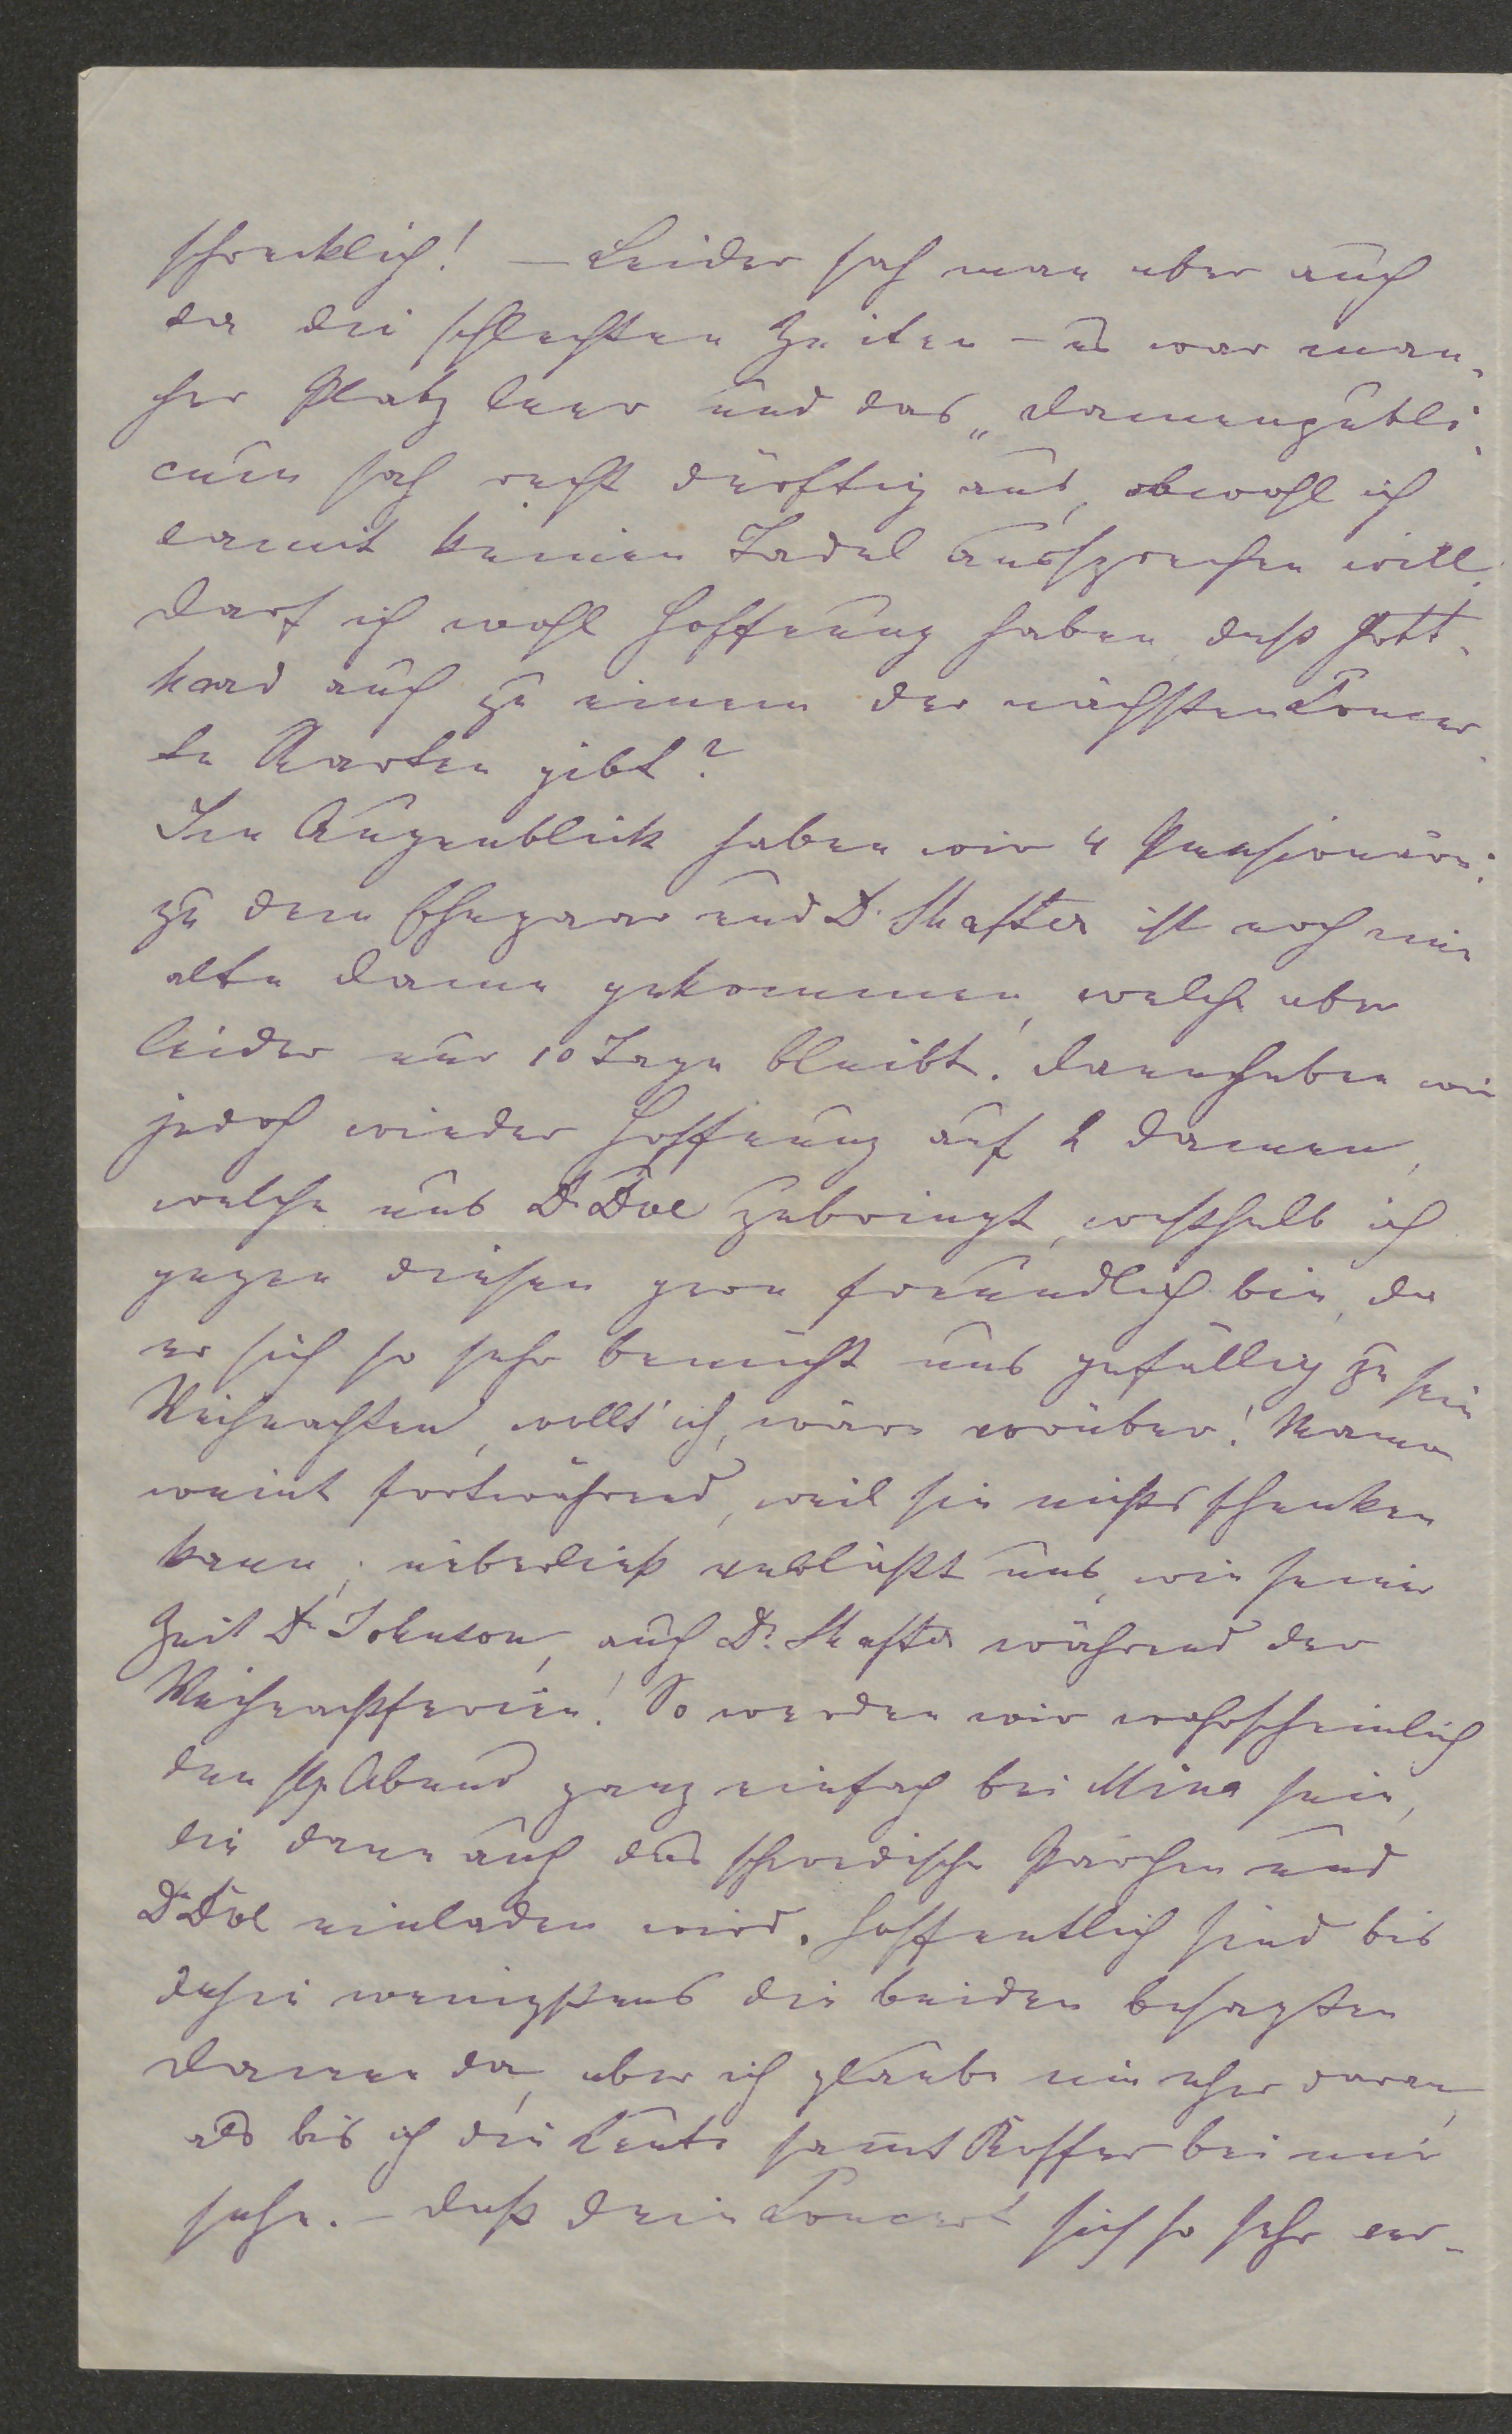 schrecklich! – Leider sah man aber auch
da die schlechten Zeiten – es war man-
cher Platz leer und das „Damenpubli-
cum sah recht dürftig aus, obwohl ich
damit keinen Tadel aussprechen will.
Darf ich wohl Hoffnung haben, daß Gott-
hard auch zu einem der nächsten Concer-
te Karten gibt?
Im Augenblick haben wir 4 Pensionäre:
zu dem Ehepaar und Dr. Shafter ist noch eine
alte Dame gekommen, welche aber
leider nur 10 Tage bleibt. Dann haben wir
jedoch wieder Hoffnung auf 2 Damen,
welche uns Dr Doe zubringt, weßhalb ich
gegen diesen gern freundlich bin, da
er sich so sehr bemüht uns gefällig zu sein
Weihnachten, wollt' ich, wäre vorüber! Mama
weint fortwährend, weil sie nichts schenken
kann; überdieß verläßt uns, wie seiner
Zeit Dr Johnson, auch Dr. Shafter während der
Weihnachtsferien! So werden wir wahrscheinlich
den hlg. Abend ganz einfach bei Mina sein,
die dann auch das schwedische Pärchen und
Dr Doe einladen wird. Hoffentlich sind bis
dahin wenigstens die beiden besagten
Damen da, aber ich glaube nie eher daran,
als bis ich die Leute samt Koffer bei mir
sehe. – Daß Dein Concert sich so sehr ver-